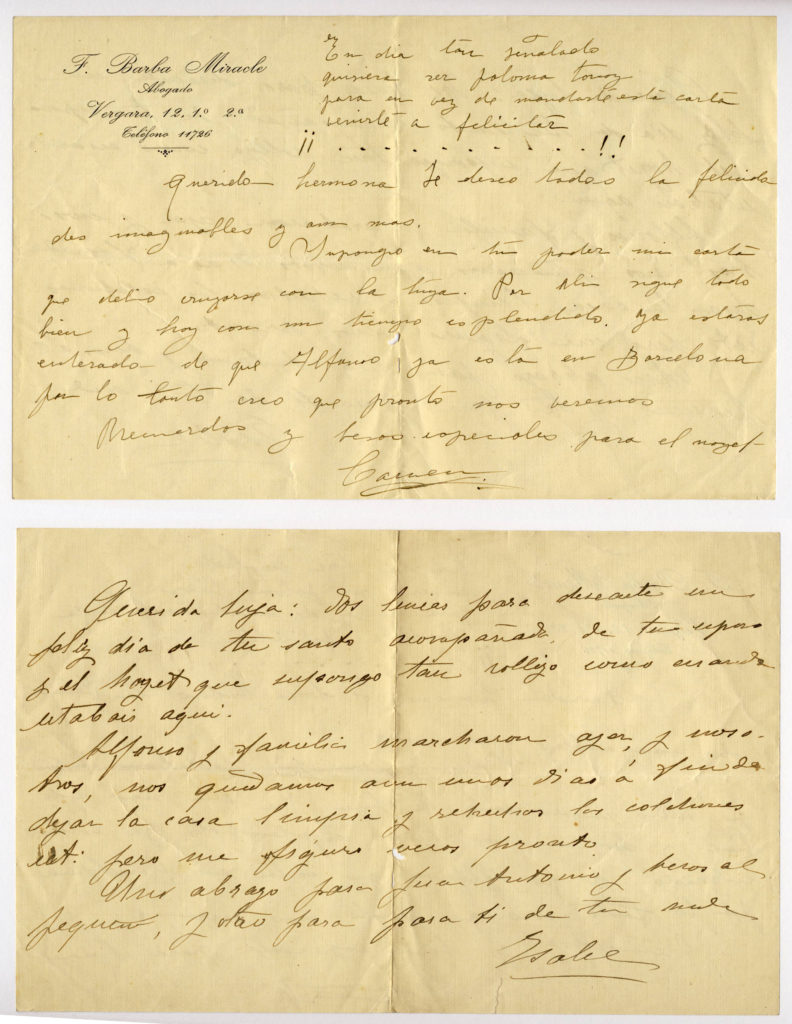 F. Barba Miracle
Abogado
Vergara, 12, 1.º 2.ª
Teléfono 11726
en
En dia tan señalado
quisiera ser paloma torcaz
para en vez de mandarte esta carta
venirte a felicitar
¡¡ . . . . . . . . . . !!
Querida hermana te deseo todas la felicida
des imaginables y aun mas.
Supongo en tu poder mi carta
que debio cruzarse con la tuya. Por ahi sigue todo
bien y hoy con un tiempo esplendido. Ya estaras
enterada de que Alfonso ya esta en Barcelona
por lo tanto creo que pronto nos veremos
Recuerdos y besos especiales para el noyet
Carmen.
Querida hija: dos lineas para desearte un
feliz dia de tu santo acompañada, de tu esposo
y el noyet que supongo tan rollizo como cuando
estabais aqui.
Alfonso y familia marcharon ayer, y noso-
tros, nos quedamos aun unos dias á fin de
dejar la casa limpia y rehechos los colchones
ect: pero me figuro veros pronto
Un abrazo para Juan Antonio y besos al
pequeño, y otro para para ti de tu madre
Isabel